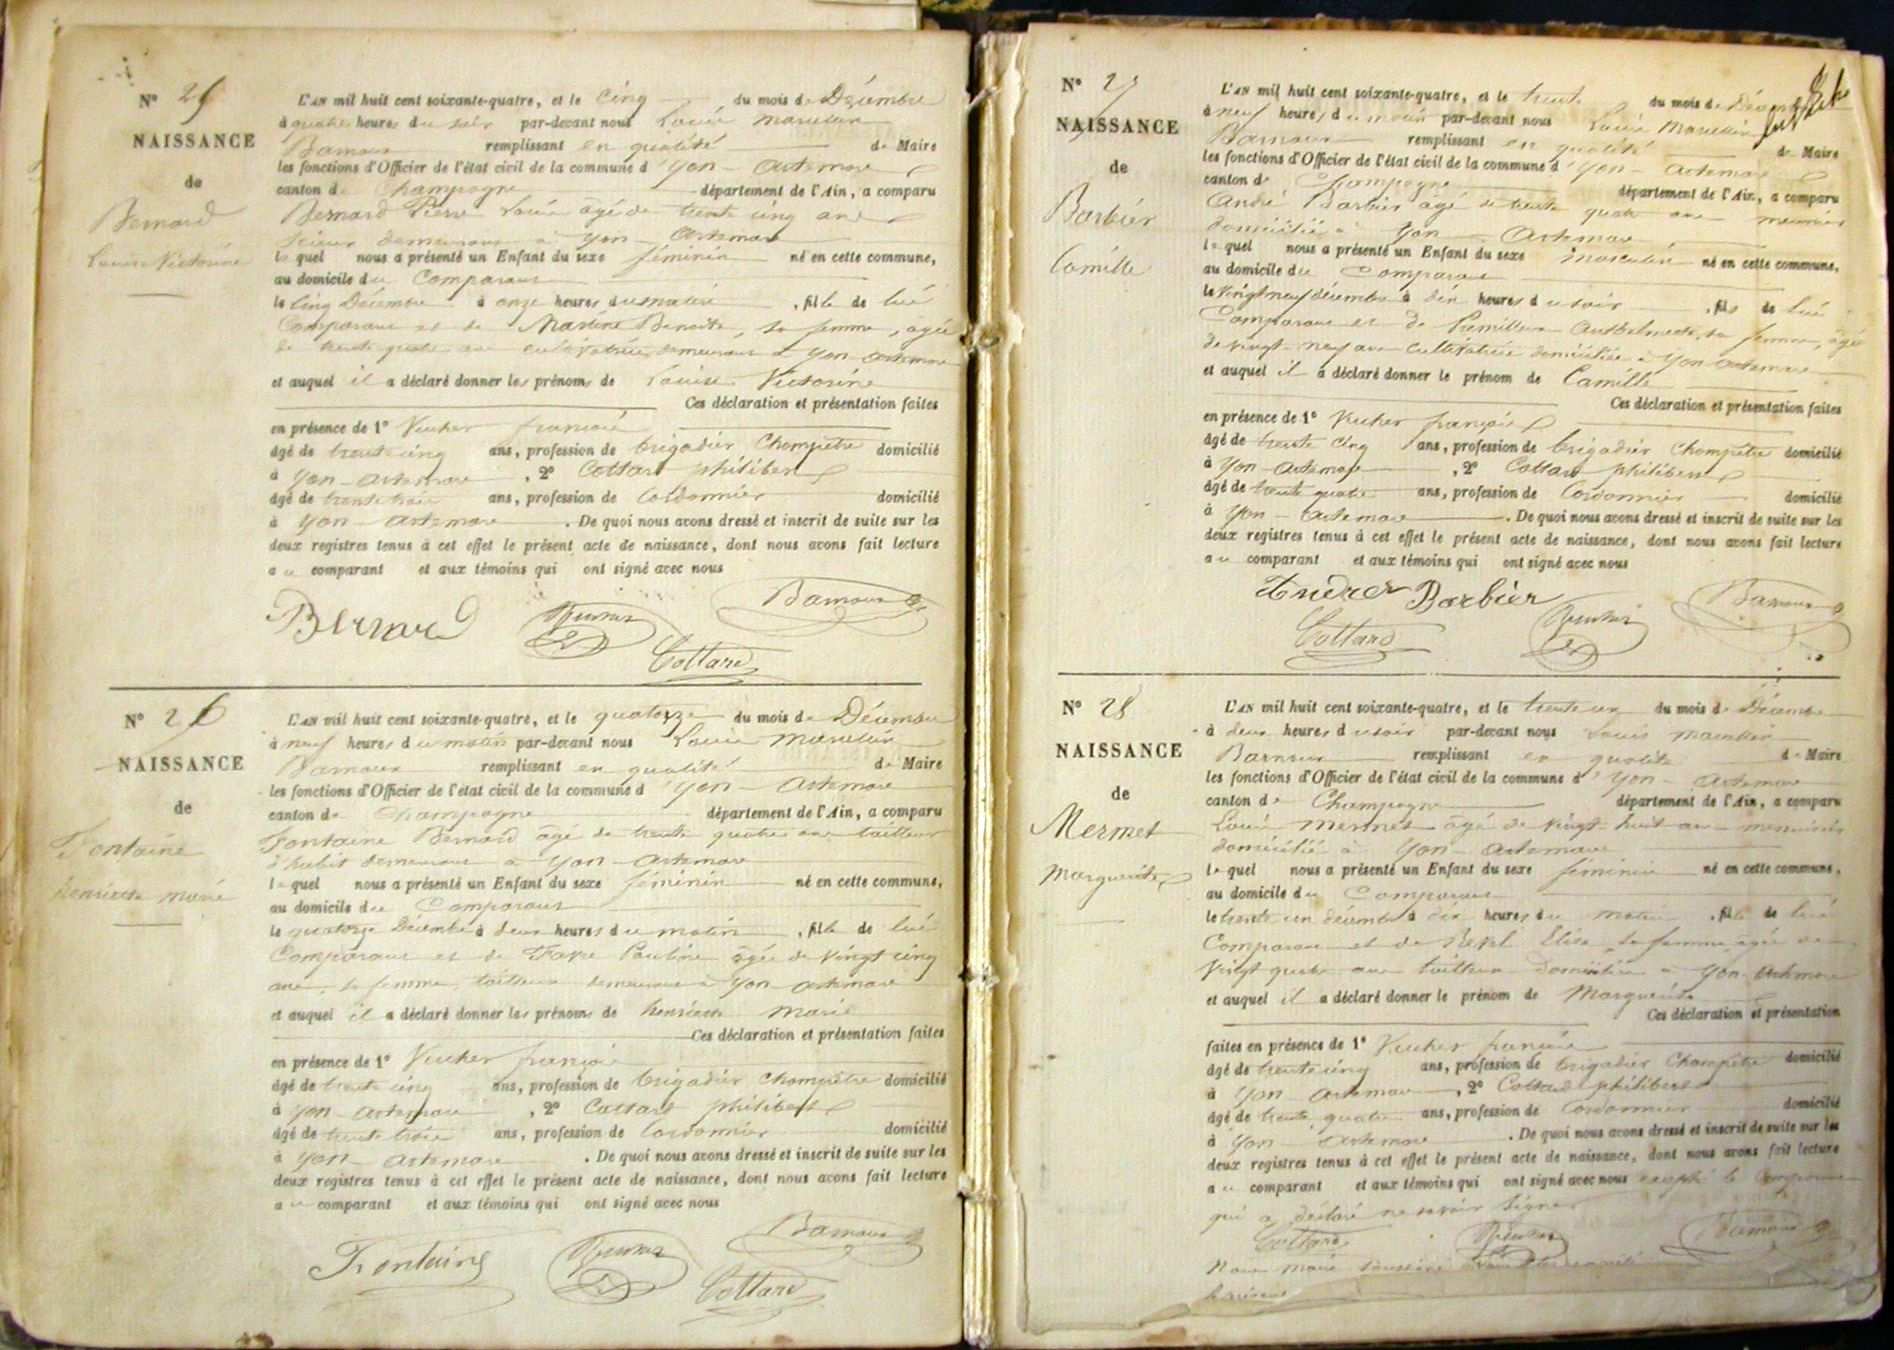 N° 25
NAISSANCE
de
Bernard
Louise Victorine
L'AN mil huit cent soixante-quatre, et le cinq du mois de Décembre
à quatre heures du soir par-devant nous Louis Marcelin
Barnoux remplissant en qualité de Maire
les fonctions d'Officier de l'état civil de la commune d'Yon-Artemare
canton de Champagne département de l'Ain, a comparu
Bernard Pierre Louis âgé de trente cinq ans
demeurant à Yon-Artemare
lequel nous a présenté un Enfant du sexe féminin né en cette commune,
au domicile du Comparant
le cinq Décembre à onze heures du matin, fille de lui
Comparant et de Benoite, sa femme, âgée
de trente quatre ans cultivatrice demeurant à Yon-Artemare
et auquel il a déclaré donner les prénoms de Louise Victorine
Ces déclaration et présentation faites
en présence de 1° Vucher françois
âgé de trente cinq ans, profession de brigadier Champêtre domicilié
à Yon-Artemare, 2° Cottard philibert
âgé de trente trois ans, profession de Cordonnier domicilié
à Yon-Artemare. De quoi nous avons dressé et inscrit de suite sur les
deux registres tenus à cet effet le présent acte de naissance, dont nous avons fait lecture
au comparant et aux témoins qui ont signé avec nous
Bernard
Cottard
N° 26
NAISSANCE
de
Fontaine
henriette marie
L'AN mil huit cent soixante-quatre, et le quatorze du mois de Décembre
à neuf heures du matin par-devant nous Louis Marcelin
Barnoux remplissant en qualité de Maire
les fonctions d'Officier de l'état civil de la commune d'Yon-Artemare
canton de Champagne département de l'Ain, a comparu
Fontaine Bernard âgé de trente quatre ans tailleur
d'habit demeurant à Yon-Artemare
lequel nous a présenté un Enfant du sexe féminin né en cette commune,
au domicile du Comparant
le quatorze Décembre à deux heures du matin, fille de lui
Comparant et de Favre Pauline âgée de vingt cinq
ans, sa femme, tailleuse demeurant à Yon-Artemare
et auquel il a déclaré donner les prénoms de henriette marie
Ces déclaration et présentation faites
en présence de 1° Vucher françois
âgé de trente cinq ans, profession de brigadier Champêtre domicilié
à Yon-Artemare, 2° Cottard philibert
âgé de trente trois ans, profession de Cordonnier domicilié
à Yon-Artemare. De quoi nous avons dressé et inscrit de suite sur les
deux registres tenus à cet effet le présent acte de naissance, dont nous avons fait lecture
au comparant et aux témoins qui ont signé avec nous
Barnoux
Fontaine
Cottard
N° 27
NAISSANCE
de
Barbier
Camille
L'AN mil huit cent soixante-quatre, et le trente du mois de Décembre
à neuf heures du matin par-devant nous Louis Marcelin
Barnoux remplissant en qualité de Maire
les fonctions d'Officier de l'état civil de la commune d'Yon-Artemare
canton de Champagne département de l'Ain, a comparu
André Barbier âgé de trente quatre ans menuisier
domicilié à Yon-Artemare
lequel nous a présenté un Enfant du sexe masculin né en cette commune,
au domicile du Comparant
le vingt neuf décembre à dix heures du soir, fils de lui
Comparant et de Anthelmette, sa femme, âgée
de vingt-neuf ans cultivatrice domiciliée à Yon-Artemare
et auquel il a déclaré donner le prénom de Camille
Ces déclaration et présentation faites
en présence de 1° Vucher françois
âgé de trente cinq ans, profession de brigadier Champêtre domicilié
à Yon-Artemare, 2° Cottard philibert
âgé de trente quatre ans, profession de Cordonnier domicilié
à Yon-Artemare. De quoi nous avons dressé et inscrit de suite sur les
deux registres tenus à cet effet le présent acte de naissance, dont nous avons fait lecture
au comparant et aux témoins qui ont signé avec nous
Barbier
Cottard
N° 28
NAISSANCE
de
Mermet
Marguerite
L'AN mil huit cent soixante-quatre, et le trente un du mois de Décembre
à deux heures du soir par-devant nous Louis Marcelin
Barnoux remplissant en qualité de Maire
les fonctions d'Officier de l'état civil de la commune d'Yon-Artemare
canton de Champagne département de l'Ain, a comparu
Louis Mermet âgé de vingt-huit ans menuisier
domicilié à Yon-Artemare
lequel nous a présenté un Enfant du sexe féminin né en cette commune,
au domicile du Comparant
le trente un décembre à dix heures du matin, fille de lui
Comparant et de Elise sa femme âgée de
vingt quatre ans tailleuse domiciliée à Yon-Artemare
et auquel il a déclaré donner le prénom de Marguerite
Ces déclaration et présentation
faites en présence de 1° Vucher françois
âgé de trente cinq ans, profession de brigadier Champêtre domicilié
à Yon Artemare, 2° Cottard philibert
âgé de trente quatre ans, profession de Cordonnier domicilié
à Yon-Artemare. De quoi nous avons dressé et inscrit de suite sur les
deux registres tenus à cet effet le présent acte de naissance, dont nous avons fait lecture
au comparant et aux témoins qui ont signé avec nous excepté le Comparant
qui a déclaré ne savoir signer
Cottard
Nous maire